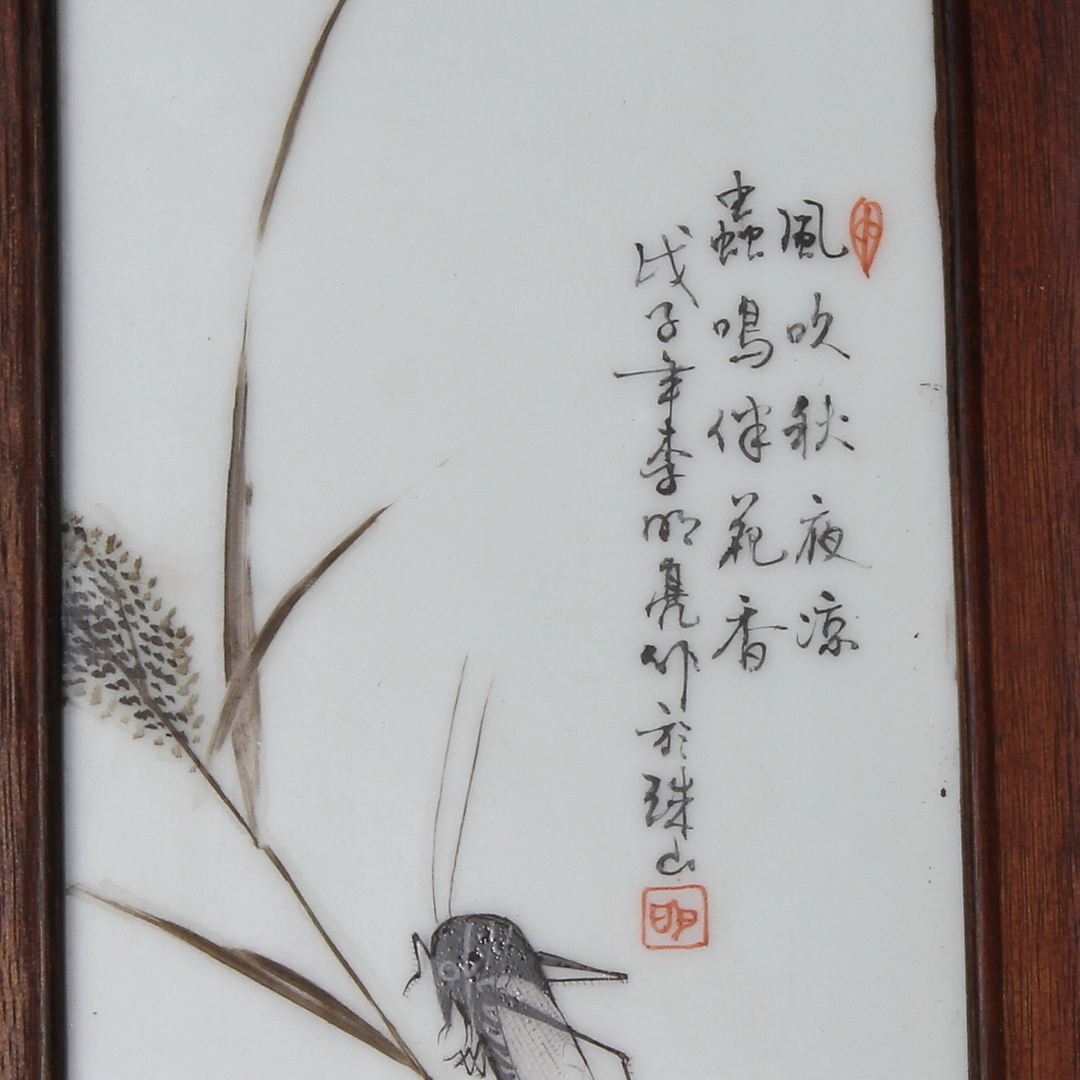 風吹秋夜涼
蟲鳴伴花香
戊子年李明亮作於珠山
明